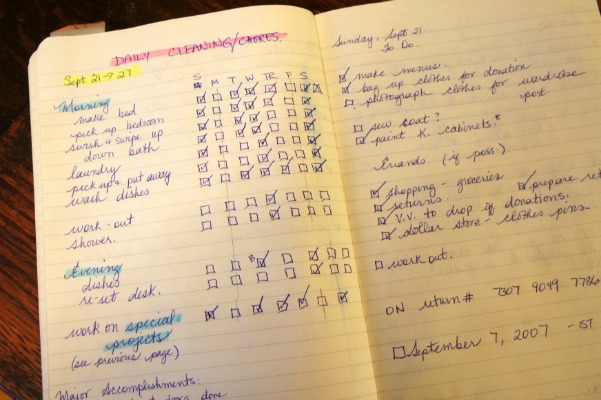 DAILY CLEANING/CHORES.
Sept 21 → 27
S M T W TR F S
Morning
make bed
pick up bedroom
swish & swipe up
down bath
laundry
pick up & put away
wash dishes
work-out
shower.
Evening
dishes
re-set desk.
work on special
projects
(see previous page)
Major Accomplishments:
done.
Sunday, Sept 21.
To Do.
make menus.
bag up clothes for donation
photograph clothes for wardrobe
post
sew coat?
paint K. cabinets.*
Errands (if poss.)
shopping - groceries
returns. prepare
V.V. to drop off donations.
dollar store - clothes pins
work out.
ON return # 7307 9049 7786
September 7, 2007 -